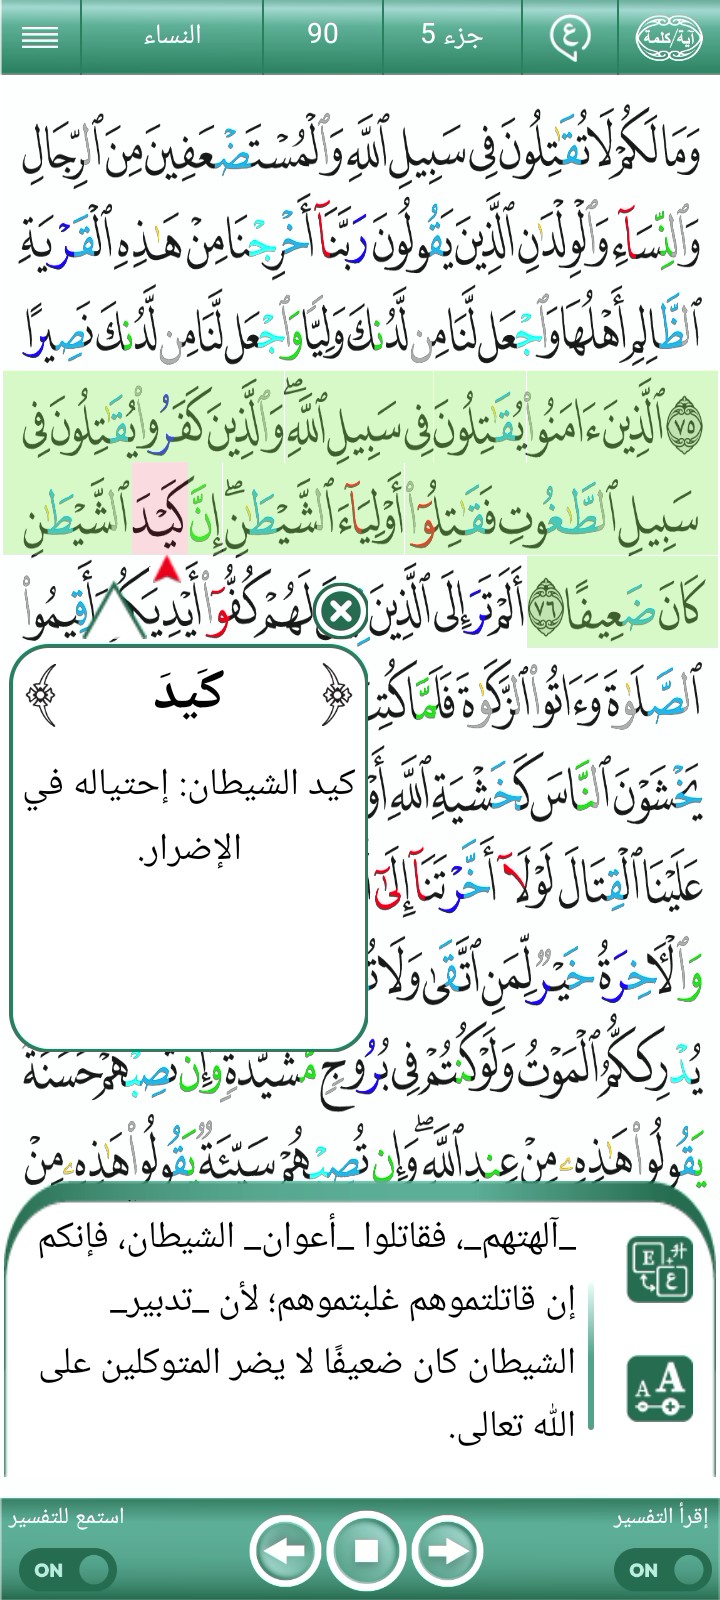 آية/كلمة ع جزء 5 90 النساء
وَمَا لَكُمْ لَا تُقَـٰتِلُونَ فِى سَبِيلِ ٱللَّهِ وَٱلْمُسْتَضْعَفِينَ مِنَ ٱلرِّجَالِ
وَٱلنِّسَآءِ وَٱلْوِلْدَٰنِ ٱلَّذِينَ يَقُولُونَ رَبَّنَآ أَخْرِجْنَا مِنْ هَـٰذِهِ ٱلْقَرْيَةِ
ٱلظَّالِمِ أَهْلُهَا وَٱجْعَل لَّنَا مِن لَّدُنكَ وَلِيًّا وَٱجْعَل لَّنَا مِن لَّدُنكَ نَصِيرًا
٧٥ ٱلَّذِينَ ءَامَنُوا۟ يُقَـٰتِلُونَ فِى سَبِيلِ ٱللَّهِ ۖ وَٱلَّذِينَ كَفَرُوا۟ يُقَـٰتِلُونَ فِى
سَبِيلِ ٱلطَّـٰغُوتِ فَقَـٰتِلُوٓا۟ أَوْلِيَآءَ ٱلشَّيْطَـٰنِ ۖ إِنَّ كَيْدَ ٱلشَّيْطَـٰنِ
كَانَ ضَعِيفًا ٧٦ أَلَمْ تَرَ إِلَى ٱلَّذِينَ لَهُمْ كُفُّوٓا۟ أَيْدِيَكُمْ وَأَقِيمُوا۟
ٱلصَّلَوٰةَ وَءَاتُوا۟ ٱلزَّكَوٰةَ فَلَمَّا
يَخْشَوْنَ ٱلنَّاسَ كَخَشْيَةِ ٱللَّهِ أَوْ
عَلَيْنَا ٱلْقِتَالَ لَوْلَآ أَخَّرْتَنَآ إِلَىٰٓ
وَٱلْـَٔاخِرَةُ خَيْرٌ لِّمَنِ ٱتَّقَىٰ وَلَا
يُدْرِككُّمُ ٱلْمَوْتُ وَلَوْ كُنتُمْ فِى بُرُوجٍ مُّشَيَّدَةٍ وَإِن تُصِبْهُمْ حَسَنَةٌ
يَقُولُوا۟ هَـٰذِهِۦ مِنْ عِندِ ٱللَّهِ ۖ وَإِن تُصِبْهُمْ سَيِّئَةٌ يَقُولُوا۟ هَـٰذِهِۦ مِنْ
كَيدَ
كيد الشيطان: إحتياله في
الإضرار.
_آلهتهم_، فقاتلوا _أعوان_ الشيطان، فإنكم
إن قاتلتموهم غلبتموهم؛ لأن _تدبير_
الشيطان كان ضعيفًا لا يضر المتوكلين على
الله تعالى.
إقرأ التفسير استمع للتفسير
ON ON